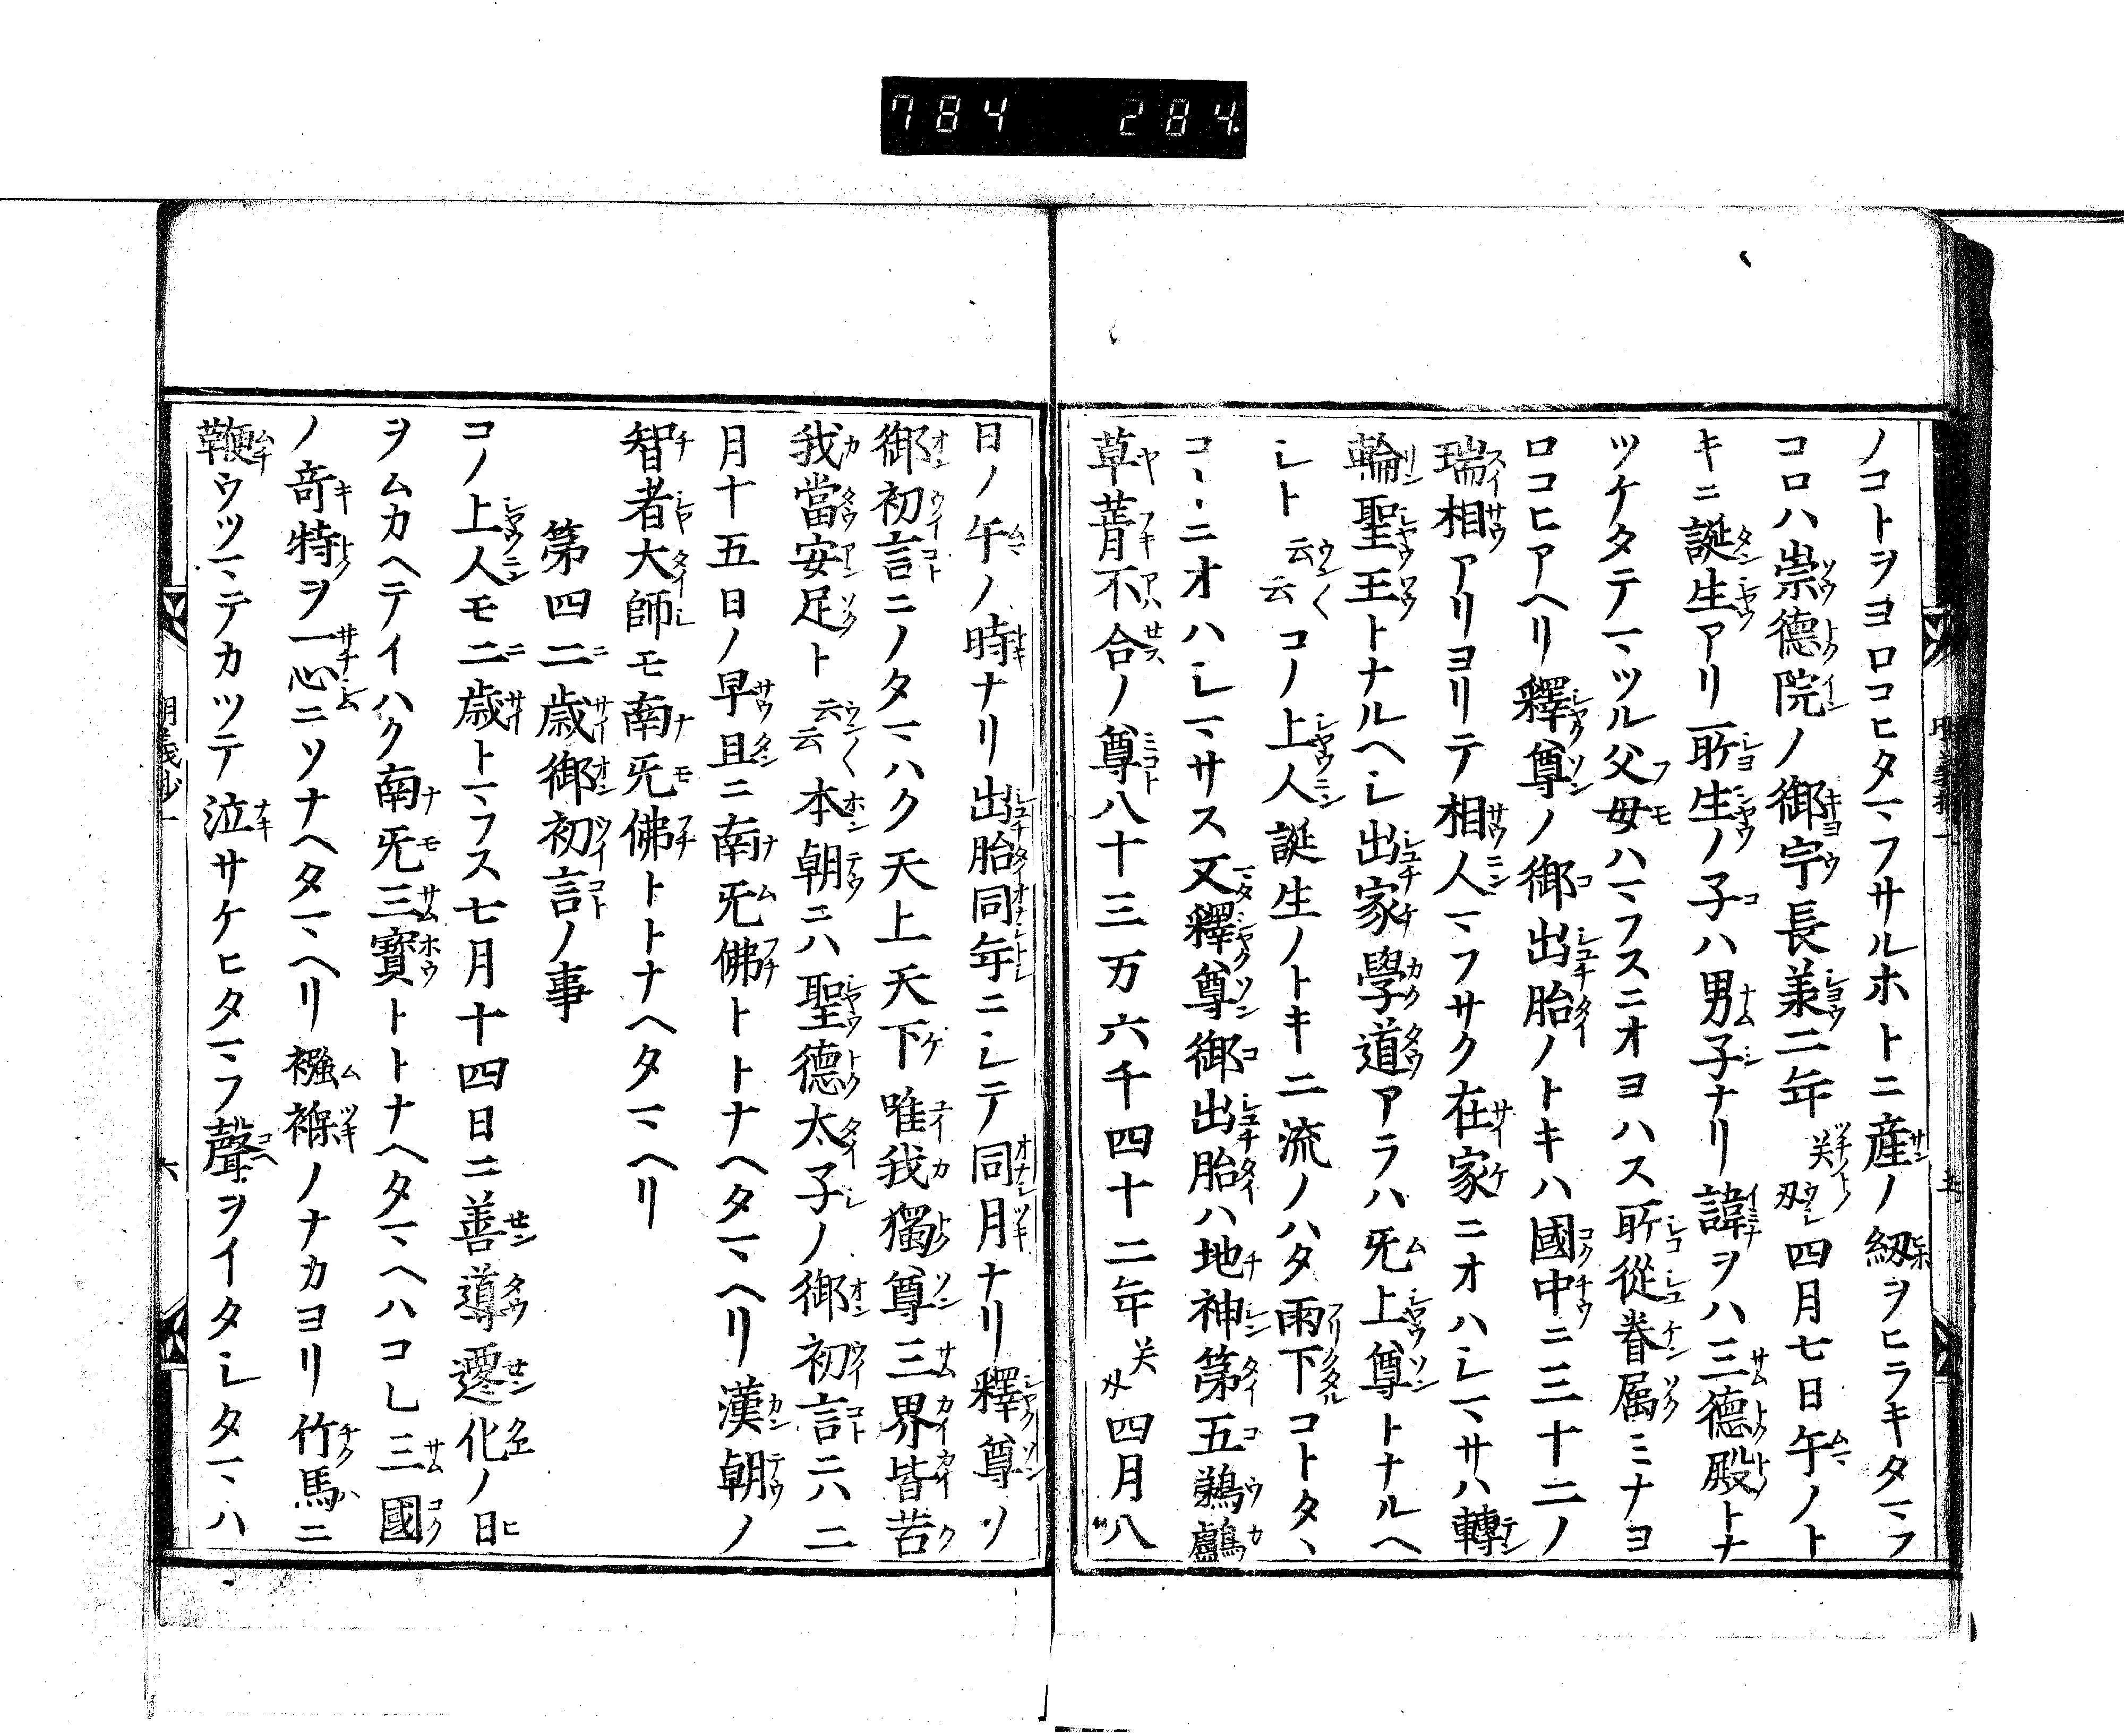 784 284.
ノコトヲヨロコヒタマフサルホトニ産ノ紐ヲヒラキタマフ
コロハ崇德院ノ御宇長羕二年癸丑四月七日午ノト
キニ誕生アリ所生ノ子ハ男子ナリ諱ヲハ三德殿トナ
ツケタテマツル父母ハマフスニオヨハス所從眷属ミナヨ
ロコヒアヘリ釋尊ノ御出胎ノトキハ國中ニ三十二ノ
瑞相アリヨリテ相人マフサク在家ニオハシマサハ轉
輪聖王トナルヘシ出家學道アラハ旡上尊トナルヘ
シト云云コノ上人誕生ノトキ二流ノハタ雨下コトタヽ
コヽニオハシマサス又釋尊御出胎ハ地神第五鸕鷀
草葺不合ノ尊八十三万六千四十二年四月八
日ノ午ノ時ナリ出胎同年ニシテ同月ナリ釋尊ノ
御初言ニノタマハク天上天下唯我獨尊三界皆苦
我當安足ト云云本朝ニハ聖德太子ノ御初言ニハ二
月十五日ノ早旦ニ南旡佛トトナヘタマヘリ漢朝ノ
智者大師モ南旡佛トトナヘタマヘリ
第四二歳御初言ノ事
コノ上人モ二歳トマフス七月十四日ニ善導遷化ノ日
ヲムカヘテイハク南旡三寳トトナヘタマヘハコレ三國
ノ竒特ヲ一心ニソナヘタマヘリ襁褓ノナカヨリ竹馬ニ
鞭ウツマテカツテ泣サケヒタマフ聲ヲイタシタマハ
六